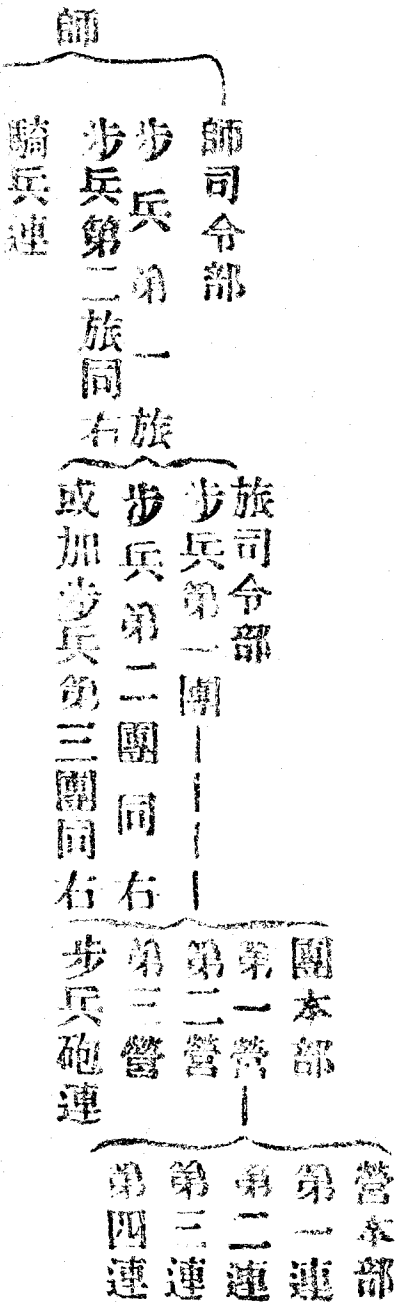 師
師司令部
步兵第一旅
步兵第二旅同右
騎兵連
旅司令部
步兵第一團
步兵第二團同右
或加步兵第三團同右
團本部
第一營
第二營
第三營
步兵砲連
營本部
第一連
第二連
第三連
第四連